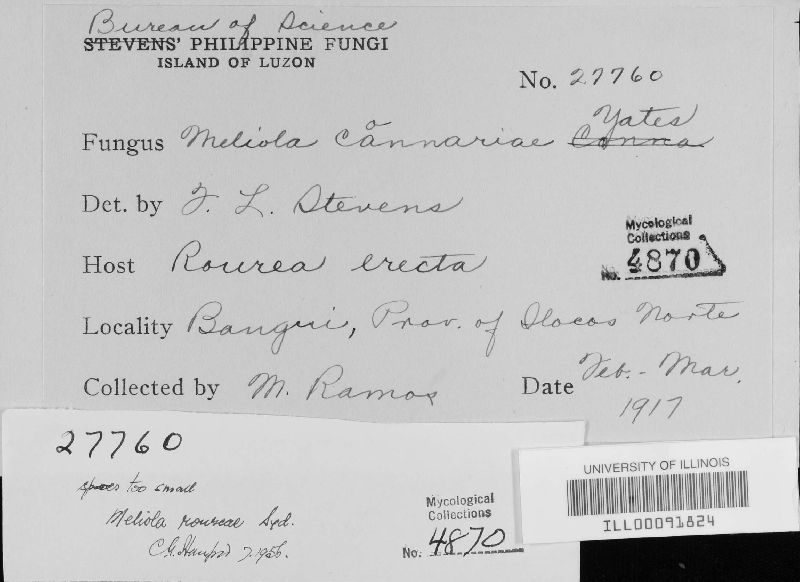 Bureau of Science
STEVENS' PHILIPPINE FUNGI
ISLAND OF LUZON
No. 27760
Fungus Meliola connariae Conna Yates
Det. by F. L. Stevens
Host Rourea erecta
Mycological
Collections
No. 4870
Locality Bangui, Prov. of Ilocos Norte
Collected by M. Ramos Date Feb. - Mar. 1917
27760
spores too small
Meliola roureae Syd.
C.G. 1956.
Mycological
Collections
No. 4870
UNIVERSITY OF ILLINOIS
ILL00091824